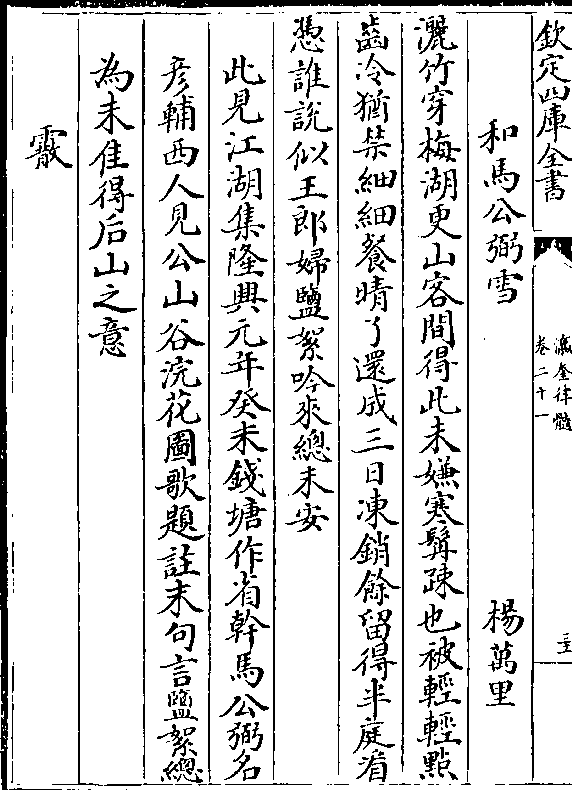 欽定四庫全書
瀛奎律髓
卷二十一
三五
和馬公弼雪
楊萬里
灑竹穿梅湖更山客間得此未嫌寒髩疎也被輕輕點
齒冷猶禁細細餐晴了還成三日凍銷餘留得半庭看
憑誰說似王郎婦鹽絮吟來總未安
此見江湖集隆興元年癸未錢塘作省幹馬公弼名
彦輔西人見公山谷浣花圖歌題註末句言鹽絮總
為未佳得后山之意
霰